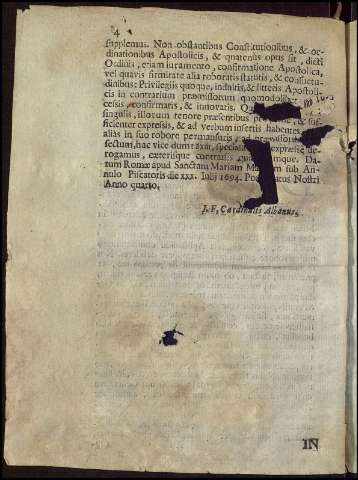 4
supplemus. Non obstantibus Constitutionibus, & or-
dinationibus Apostolicis, & quatenus opus sit, dicti
Ordinis, etiam iuramento, confirmatione Apostolica,
vel quavis firmitate alia roboratis statutis, & consuetu-
dinibus: Privilegiis quoque, indultis, & litteris Apostoli-
cis in contrarium præmissorum quomodolibet
cessis, confirmatis, & innovatis. Qu
singulis, illorum tenore præsentibus pro & suf-
ficienter expressis, & ad verbum insertis habentes
aliàs in suo robore permansuris ad præmissor
fectum, hac vice dumtaxat, speciali expresse de-
rogamus, cæterisque contrariis quib mque. Da-
tum Romæ apud Sanctam Mariam M m sub An-
nulo Piscatoris die xxx. Iulij 1694. Pon atus Nostri
Anno quarto.
J. F. Cardinalis Albanus.
IN